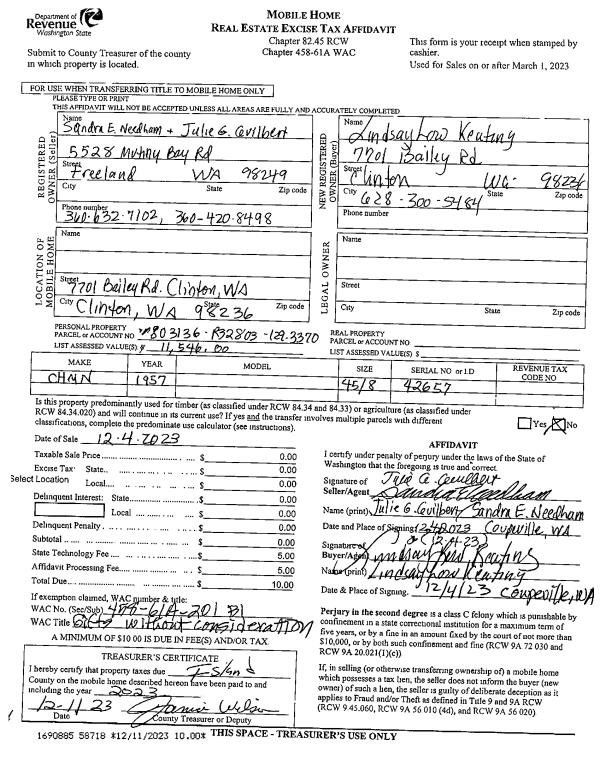 Department of
Revenue
Washington State
MOBILE HOME
REAL ESTATE EXCISE TAX AFFIDAVIT
Chapter 82.45 RCW
Chapter 458-61A WAC
Submit to County Treasurer of the county
in which property is located.
This form is your receipt when stamped by
cashier.
Used for Sales on or after March 1, 2023
FOR USE WHEN TRANSFERRING TITLE TO MOBILE HOME ONLY
PLEASE TYPE OR PRINT
THIS AFFIDAVIT WILL NOT BE ACCEPTED UNLESS ALL AREAS ARE FULLY AND ACCURATELY COMPLETED
REGISTERED
OWNER (Seller)
Name
Sandra E. Needham + Julie G. Guilbert
5528 Mutiny Bay Rd
Street
Freeland WA 98249
City State Zip code
Phone number
360-632-7102, 360-420-8498
NEW REGISTERED
OWNER (Buyer)
Name
Lindsay Low Keating
7701 Bailey Rd
Street
Clinton WA 98236
City State Zip code
628-300-5484
Phone number
LOCATION OF
MOBILE HOME
Name
Street
7701 Bailey Rd. Clinton, WA
City State Zip code
Clinton, WA 98236
LEGAL OWNER
Name
Street
City State Zip code
PERSONAL PROPERTY
PARCEL or ACCOUNT NO #803136-R32803-129-3370
LIST ASSESSED VALUE(S) $ 11,546.00
REAL PROPERTY
PARCEL or ACCOUNT NO
LIST ASSESSED VALUE(S) $
MAKE YEAR MODEL SIZE SERIAL NO or I.D REVENUE TAX CODE NO
CHMN 1957 45/8 42657
Is this property predominantly used for timber (as classified under RCW 84.34 and 84.33) or agriculture (as classified under
RCW 84.34.020) and will continue in its current use? If yes and the transfer involves multiple parcels with different
classifications, complete the predominate use calculator (see instructions).
Yes No
Date of Sale 12-4-2023
Taxable Sale Price $ 0.00
Excise Tax: State $ 0.00
Select Location
Local $ 0.00
Delinquent Interest: State $ 0.00
Local $ 0.00
Delinquent Penalty $ 0.00
Subtotal $ 0.00
State Technology Fee $ 5.00
Affidavit Processing Fee $ 5.00
Total Due $ 10.00
If exemption claimed, WAC number & title:
WAC No. (Sec/Sub) 458-61A-201 B1
WAC Title Gifts without consideration
A MINIMUM OF $10.00 IS DUE IN FEE(S) AND/OR TAX
TREASURER'S CERTIFICATE
I hereby certify that property taxes due Island
County on the mobile home described hereon have been paid to and
including the year 2023
12-11-23 Janice Wilson
Date County Treasurer or Deputy
AFFIDAVIT
I certify under penalty of perjury under the laws of the State of
Washington that the foregoing is true and correct.
Signature of Julie G. Guilbert
Seller/Agent Sandra E Needham
Name (print) Julie G. Guilbert Sandra E. Needham
Date and Place of Signing Coupeville, WA
(12-4-23)
Signature of
Buyer/Agent Lindsay Low Keating
Name (print) Lindsay Low Keating
Date & Place of Signing. 12/4/23 Coupeville, WA
Perjury in the second degree is a class C felony which is punishable by
confinement in a state correctional institution for a maximum term of
five years, or by a fine in an amount fixed by the court of not more than
$10,000, or by both such confinement and fine (RCW 9A 72 030 and
RCW 9A 20.021(1)(c))
If, in selling (or otherwise transferring ownership of) a mobile home
which possesses a tax lien, the seller does not inform the buyer (new
owner) of such a lien, the seller is guilty of deliberate deception as it
applies to Fraud and/or Theft as defined in Title 9 and 9A RCW
(RCW 9.45.060, RCW 9A 56 010 (4d), and RCW 9A 56 020).
1690885 58718 *12/11/2023 10.00* THIS SPACE - TREASURER'S USE ONLY